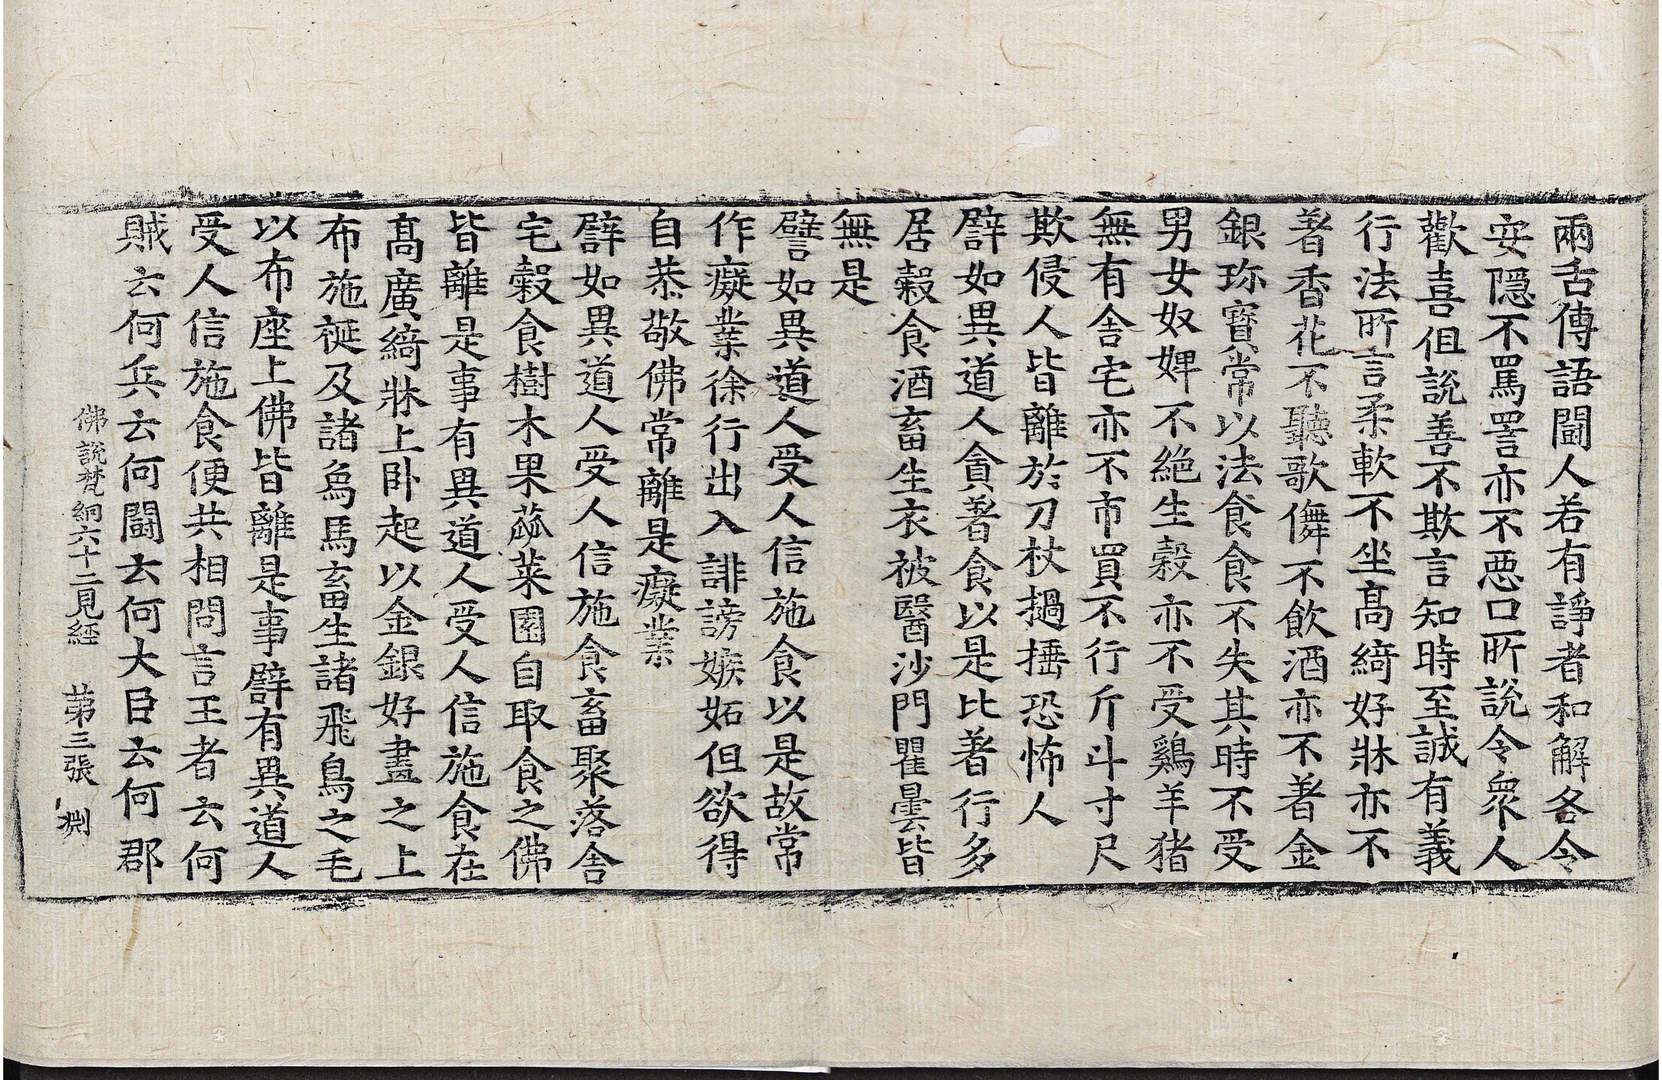 兩舌傳語鬪人若有諍者和解各令
安隱不罵詈亦不惡口所說令衆人
歡喜但說善不欺言知時至誠有義
行法所言柔軟不坐高綺好牀亦不
著香花不聽歌儛不飮酒亦不著金
銀珎寶常以法食食不失其時不受
男女奴婢不絶生穀亦不受鷄羊猪
無有舍宅亦不市買不行斤斗寸尺
欺侵人皆離於刀杖撾捶恐怖人
譬如異道人貪著食以是比著行多
居穀食酒畜生衣被醫沙門瞿曇皆
無是
譬如異道人受人信施食以是故常
作癡業徐行出入誹謗嫉妬但欲得
自恭敬佛常離是癡業
譬如異道人受人信施食畜聚落舍
宅穀食樹木果蓏菜園自取食之佛
皆離是事有異道人受人信施食在
高廣綺牀上卧起以金銀好畫之上
布施𫌨及諸爲馬畜生諸飛鳥之毛
以布座上佛皆離是事譬有異道人
受人信施食便共相問言王者云何
賊云何兵云何鬪云何大臣云何郡
佛說梵絅六十二見経 苐三張 渊